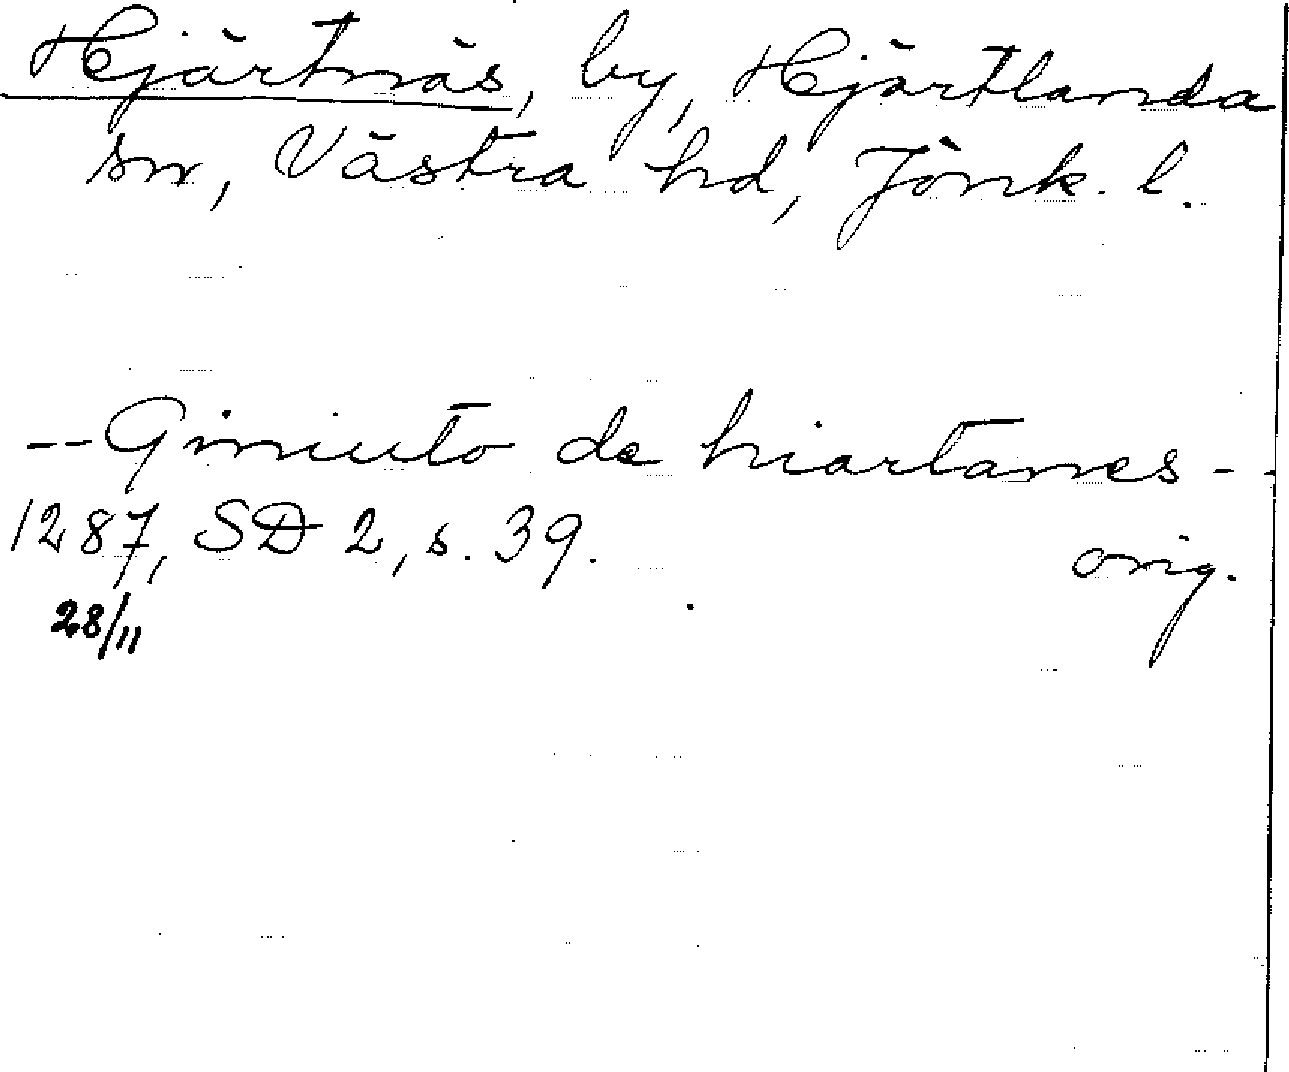 Hjärtnäs, by, Hjärtlanda
sn, Västra hd, Jönk. l.
-- Giniuto de hiartanes --
1287, SD 2, s. 39.
orig.
28/11